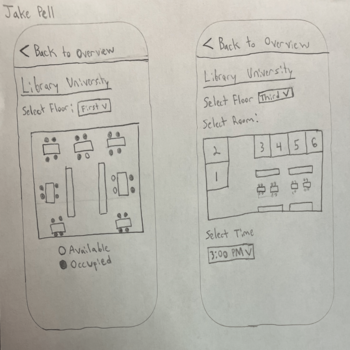 Jake Pell
< Back to Overview
Library University
Select Floor: First V
O Available
Occupied
< Back to Overview
Library University
Select Floor Third V
Select Room:
2 3 4 5 6
1
Select Time
3:00 PM V